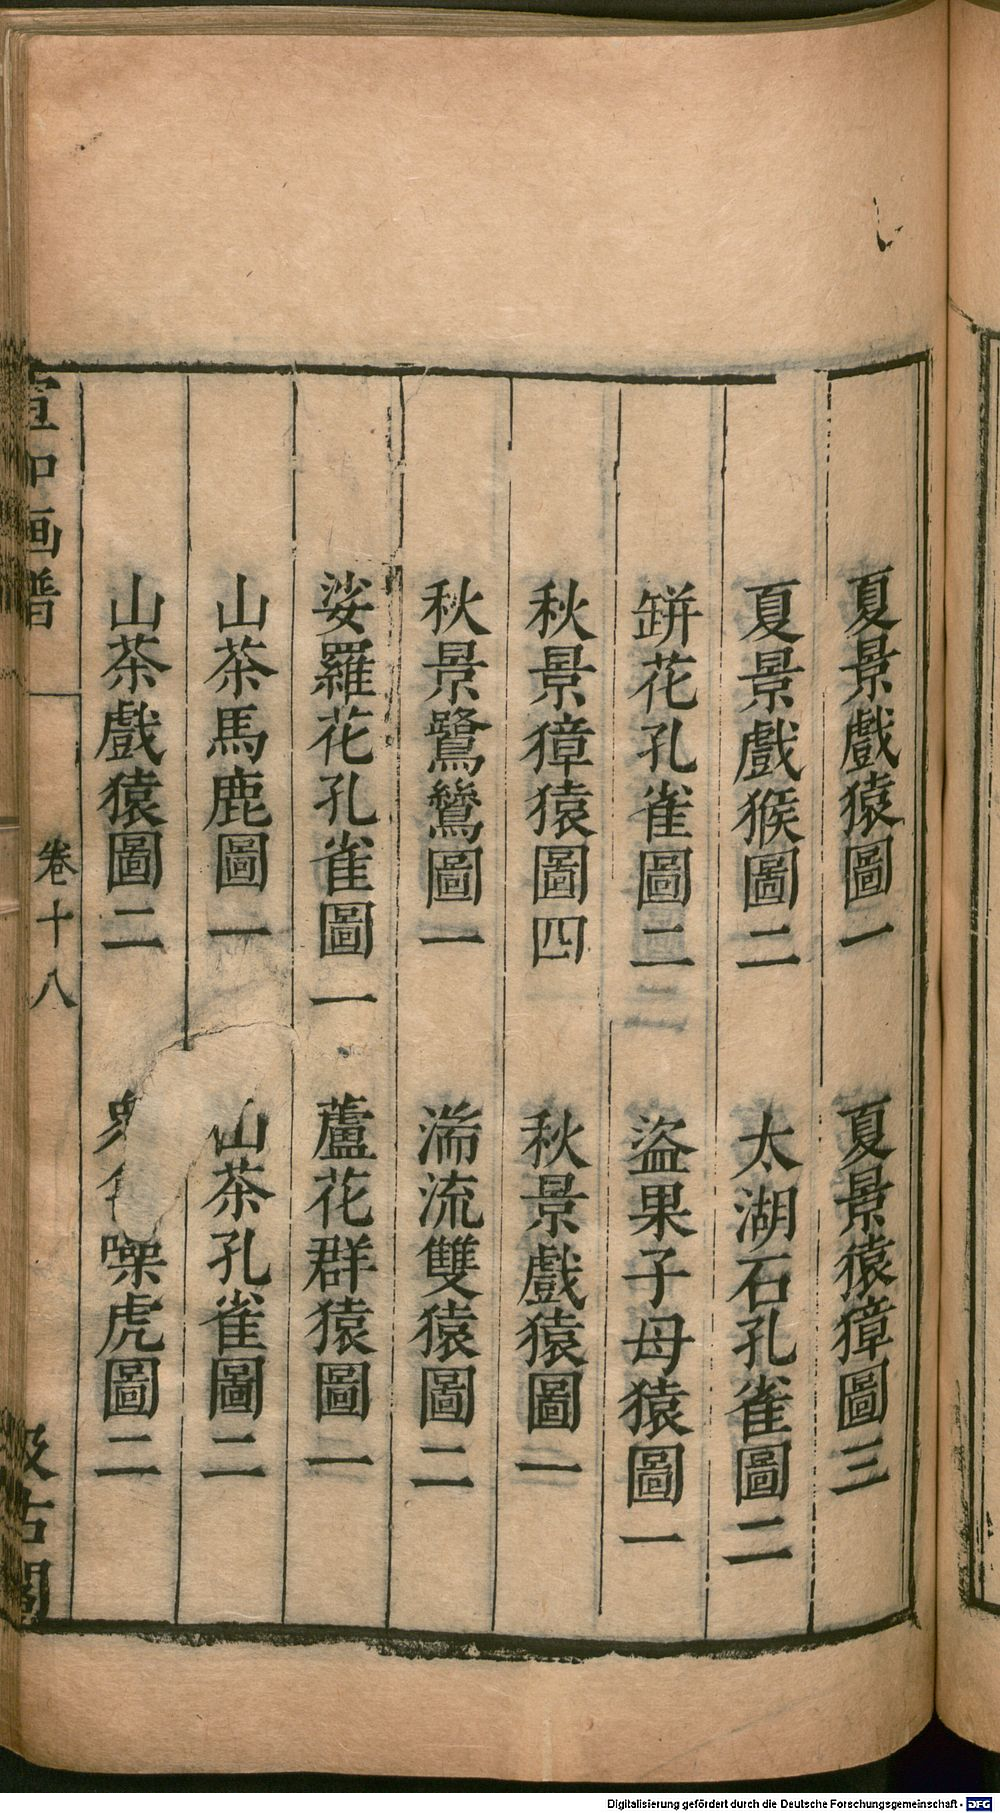 夏景戲猿圖一　夏景猿獐圖三
夏景戲猴圖二　太湖石孔雀圖二
缾花孔雀圖二　盜果子母猿圖一
秋景獐猿圖四　秋景戲猿圖一
秋景鷺鷥圖一　湍流雙猿圖二
娑羅花孔雀圖一　蘆花群猿圖一
山茶馬鹿圖一　山茶孔雀圖二
山茶戲猿圖二　噪虎圖二
宣和画譜　卷十八　汲古閣
Digitalisierung gefördert durch die Deutsche Forschungsgemeinschaft - DFG